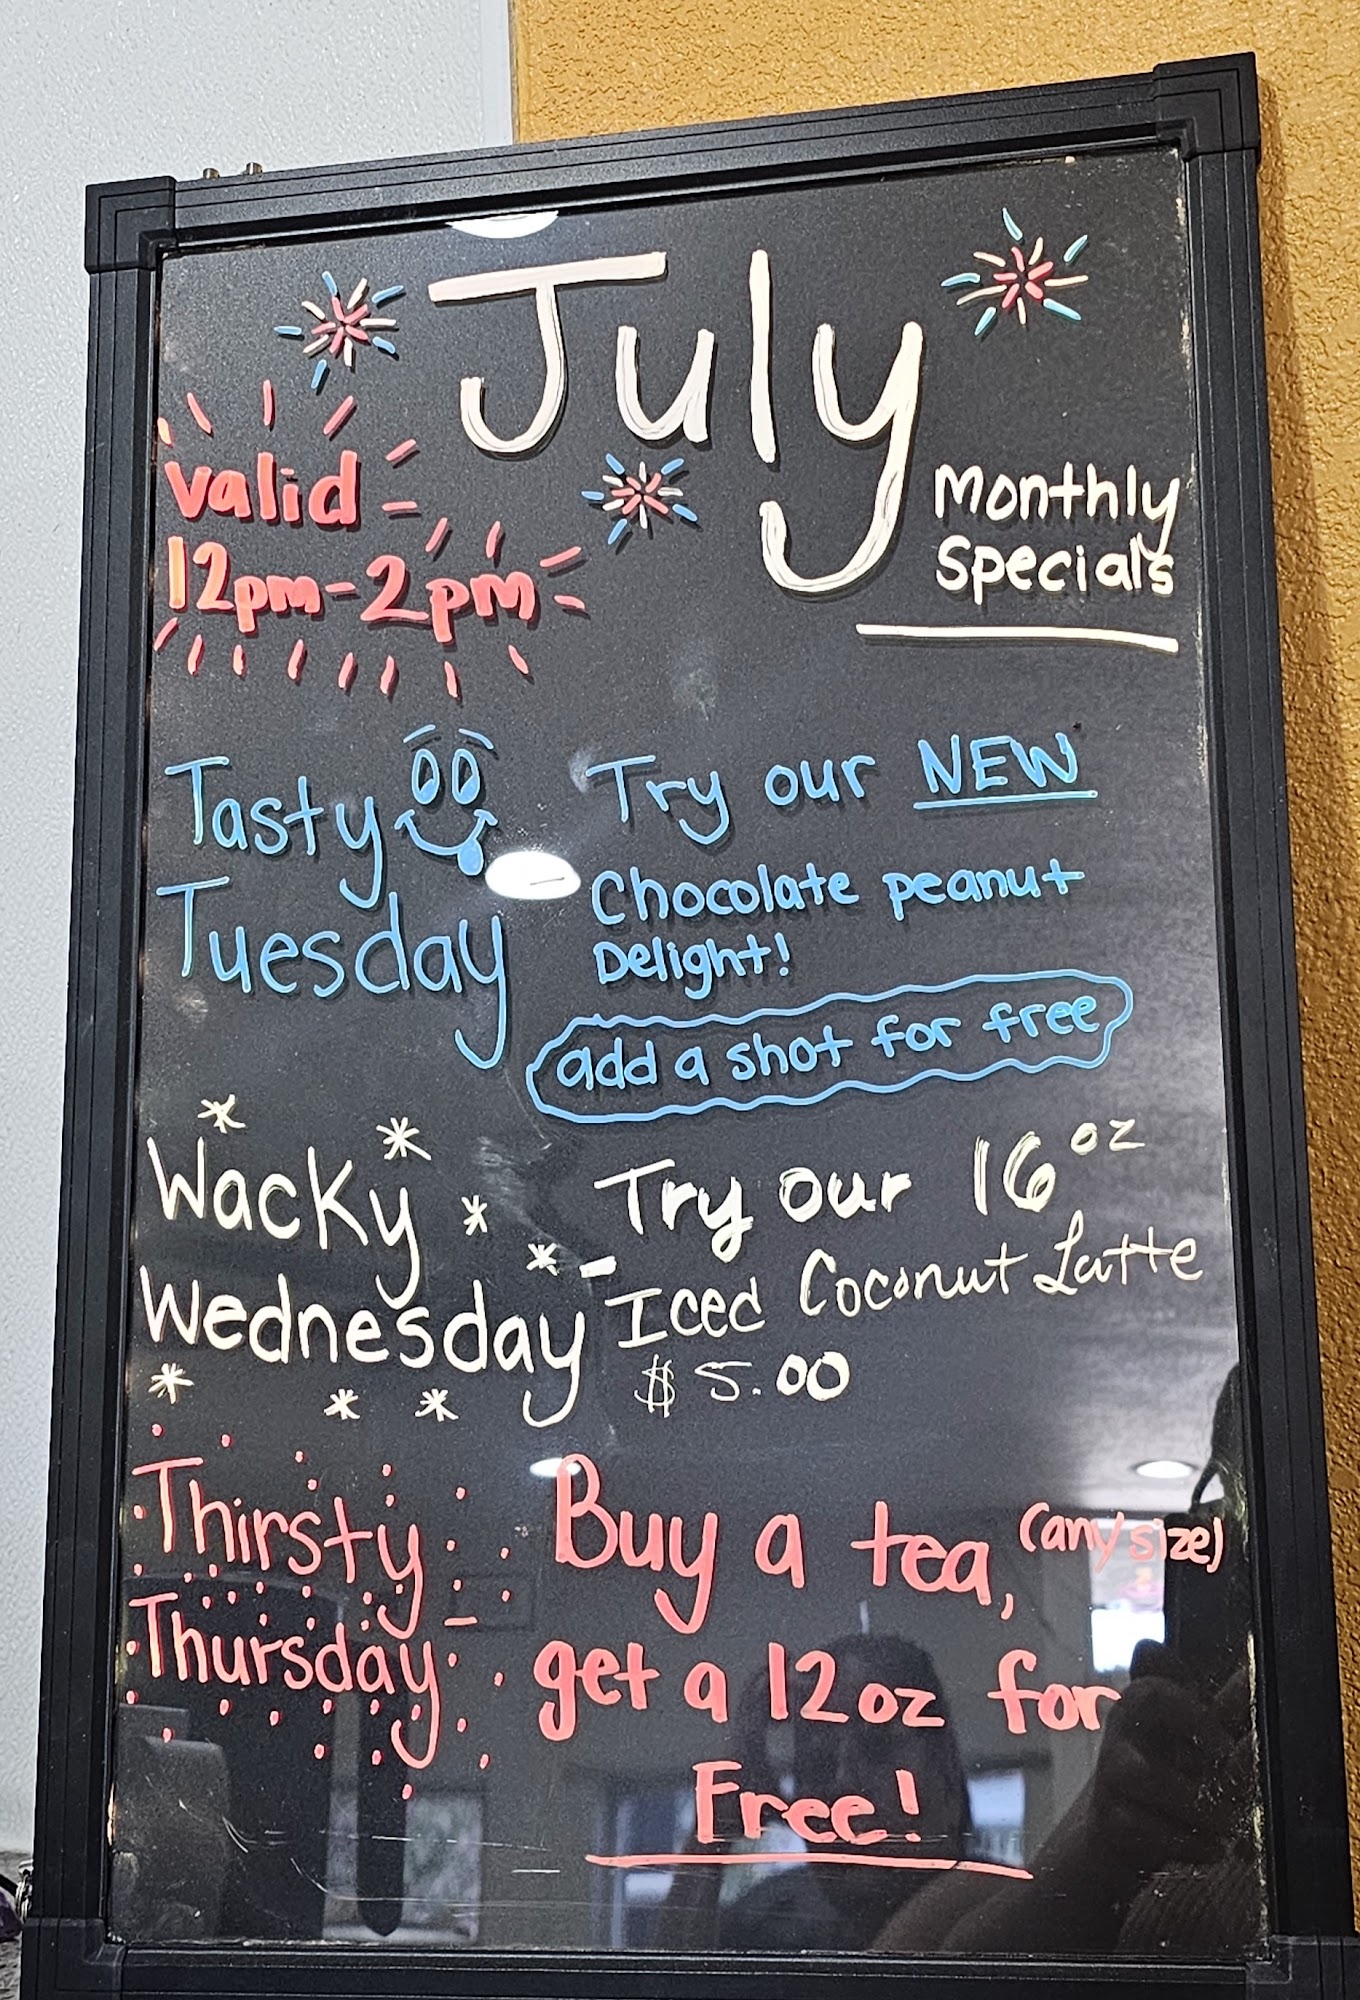 July
Monthly
Specials
valid
12pm-2pm
Tasty
Tuesday
Try our NEW
Chocolate peanut
Delight!
add a shot for free
Wacky
Wednesday
Try our 16 oz
Iced Coconut Latte
$5.00
Thirsty
Thursday
Buy a tea, (any size)
get a 12oz for
Free!